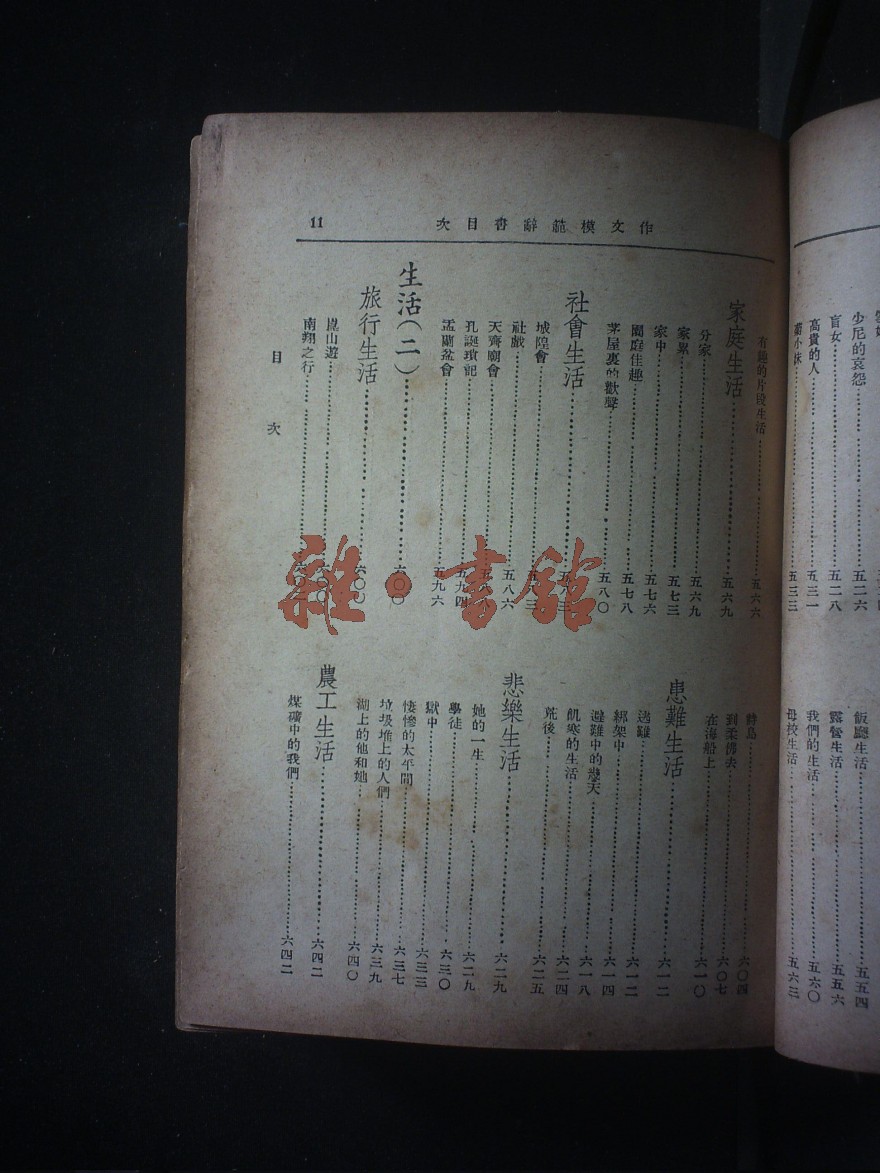 少尼的哀怨……五二六
盲女……五二八
高貴的人……五三一
小妹……五三三
飯廳生活……五五四
露營生活……五五六
我們的生活……五六〇
母校生活……五六三
作文模範辭書目次
11
有錢的片段生活……五六六
家庭生活……五六九
分家……五六九
家累……五七三
家中……五七六
閨庭佳趣……五七八
茅屋裏的歡聲……五八〇
社會生活……五八三
城隍會……五八三
社戲……五八六
天齊廟會
孔誕瑣記……五九四
盂蘭盆會……五九六
生活(二)……六〇〇
旅行生活……六〇〇
崑山遊
南翔之行
島……六〇四
到柔佛去……六〇七
在海船上……六一〇
患難生活……六一二
逃難……六一二
綁架中……六一四
避難中的幾天……六一八
飢寒的生活……六二四
荒後……六二五
悲樂生活……六二九
她的一生……六二九
學徒……六三〇
獄中……六三三
悽慘的太平間……六三七
垃圾堆上的人們……六三九
湖上的他和她……六四〇
農工生活……六四二
煤礦中的我們……六四二
目次
雜·書館